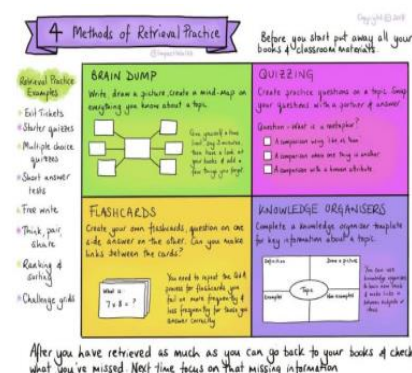 Copyright © 2018
4 Methods of Retrieval Practice
@impactwales
Before you start put away all your
books & classroom materials.
Retrieval Practice
Examples
Exit Tickets
Starter quizzes
Multiple choice
quizzes
Short answer
tests
Free write
Think, pair,
share
Ranking &
sorting
Challenge grids
BRAIN DUMP
Write, draw a picture, create a mind-map on
everything you know about a topic.
Give yourself a time
limit, say 3 minutes,
then have a look at
your books & add a
few things you forgot.
QUIZZING
Create practice questions on a topic. Swap
your questions with a partner & answer.
Question - What is a metaphor?
A comparison using 'like' or 'than'
A comparison when one thing is another
A comparison with a human attribute
FLASHCARDS
Create your own flashcards, question on one
side answer on the other. Can you make
links between the cards?
What is
7 x 8 = ?
You need to repeat the Q&A
process for flashcards you
fail on more frequently &
less frequently for those you
answer correctly.
KNOWLEDGE ORGANISERS
Complete a knowledge organiser template
for key information about a topic.
Definition
Draw a picture
Topic
Examples
Non-examples
You can use
knowledge organisers
to learn new topics
& make links
between subjects or
ideas.
After you have retrieved as much as you can go back to your books & check
what you've missed. Next time focus on that missing information